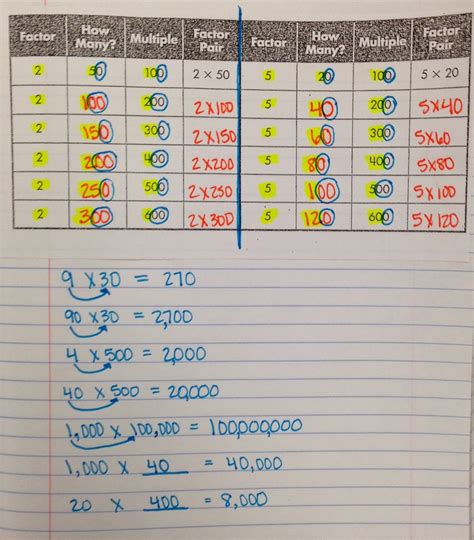 Factor How Many? Multiple Factor Pair Factor How Many? Multiple Factor Pair
2 50 100 2 × 50 5 20 100 5 × 20
2 100 200 2x100 5 40 200 5x40
2 150 300 2x150 5 60 300 5x60
2 200 400 2x200 5 80 400 5x80
2 250 500 2x250 5 100 500 5x100
2 300 600 2x300 5 120 600 5x120
9 x 30 = 270
90 x 30 = 2,700
4 x 500 = 2,000
40 x 500 = 20,000
1,000 x 100,000 = 100,000,000
1,000 x 40 = 40,000
20 x 400 = 8,000